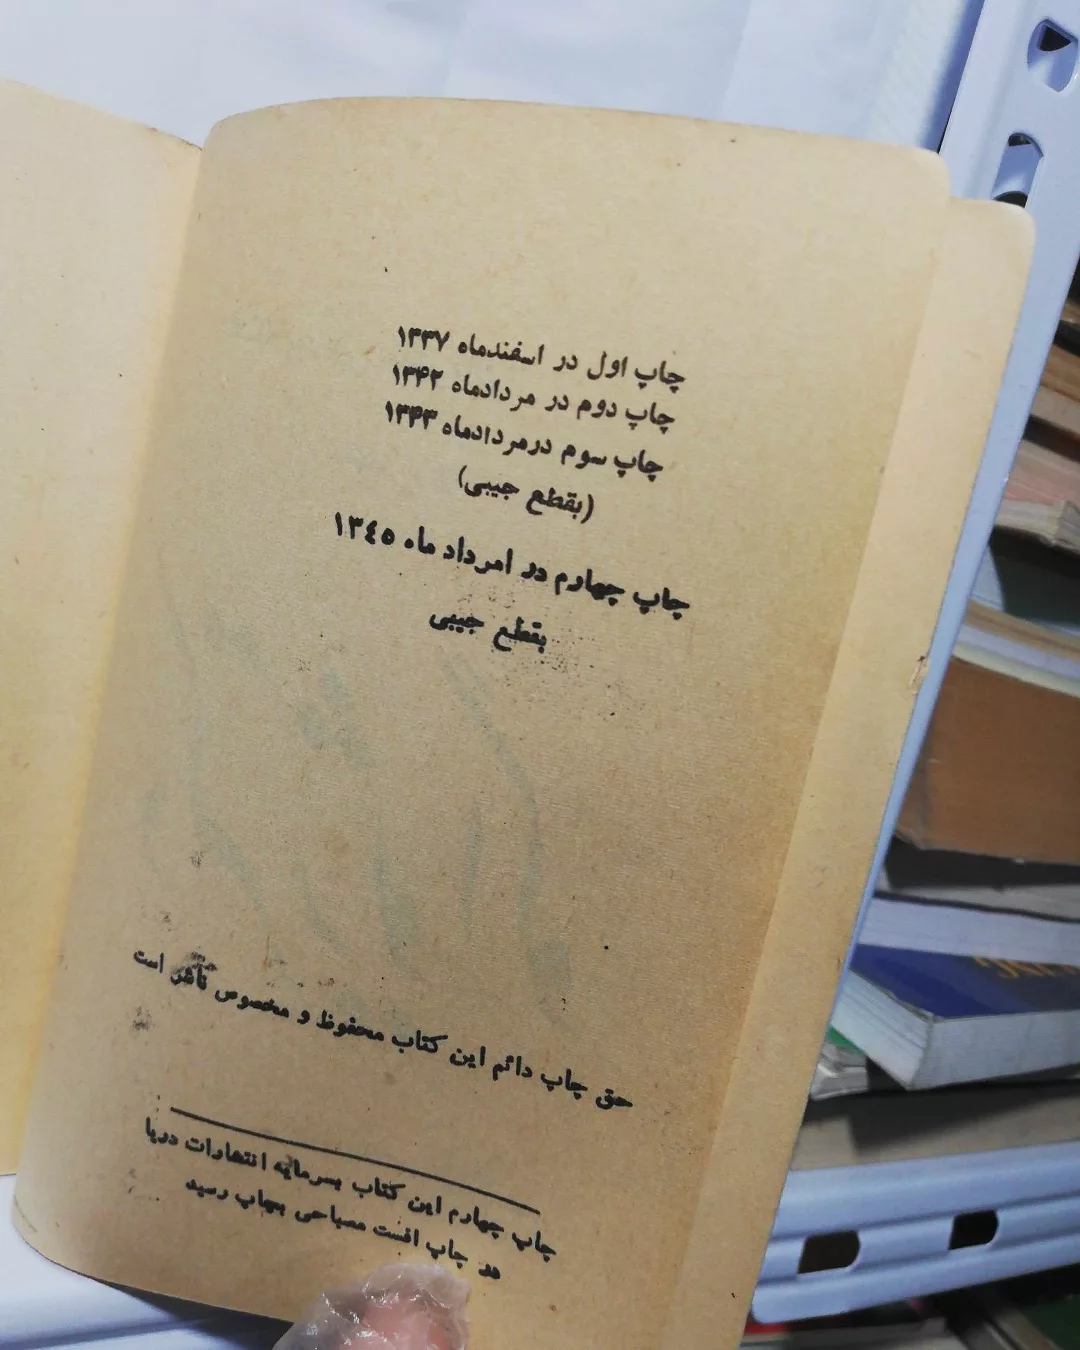 چاپ اول در اسفندماه ۱۳۳۷
چاپ دوم در مردادماه ۱۳۴۲
چاپ سوم درمردادماه ۱۳۴۳
(بقطع جیبی)
چاپ چهارم در امرداد ماه ۱۳٤٥
بقطع جیبی
حق چاپ دائم این کتاب محفوظ و مخصوص ناشر است
چاپ چهارم این کتاب بسرمایه انتشارات دریا
در چاپ افست مصباحی بچاپ رسید